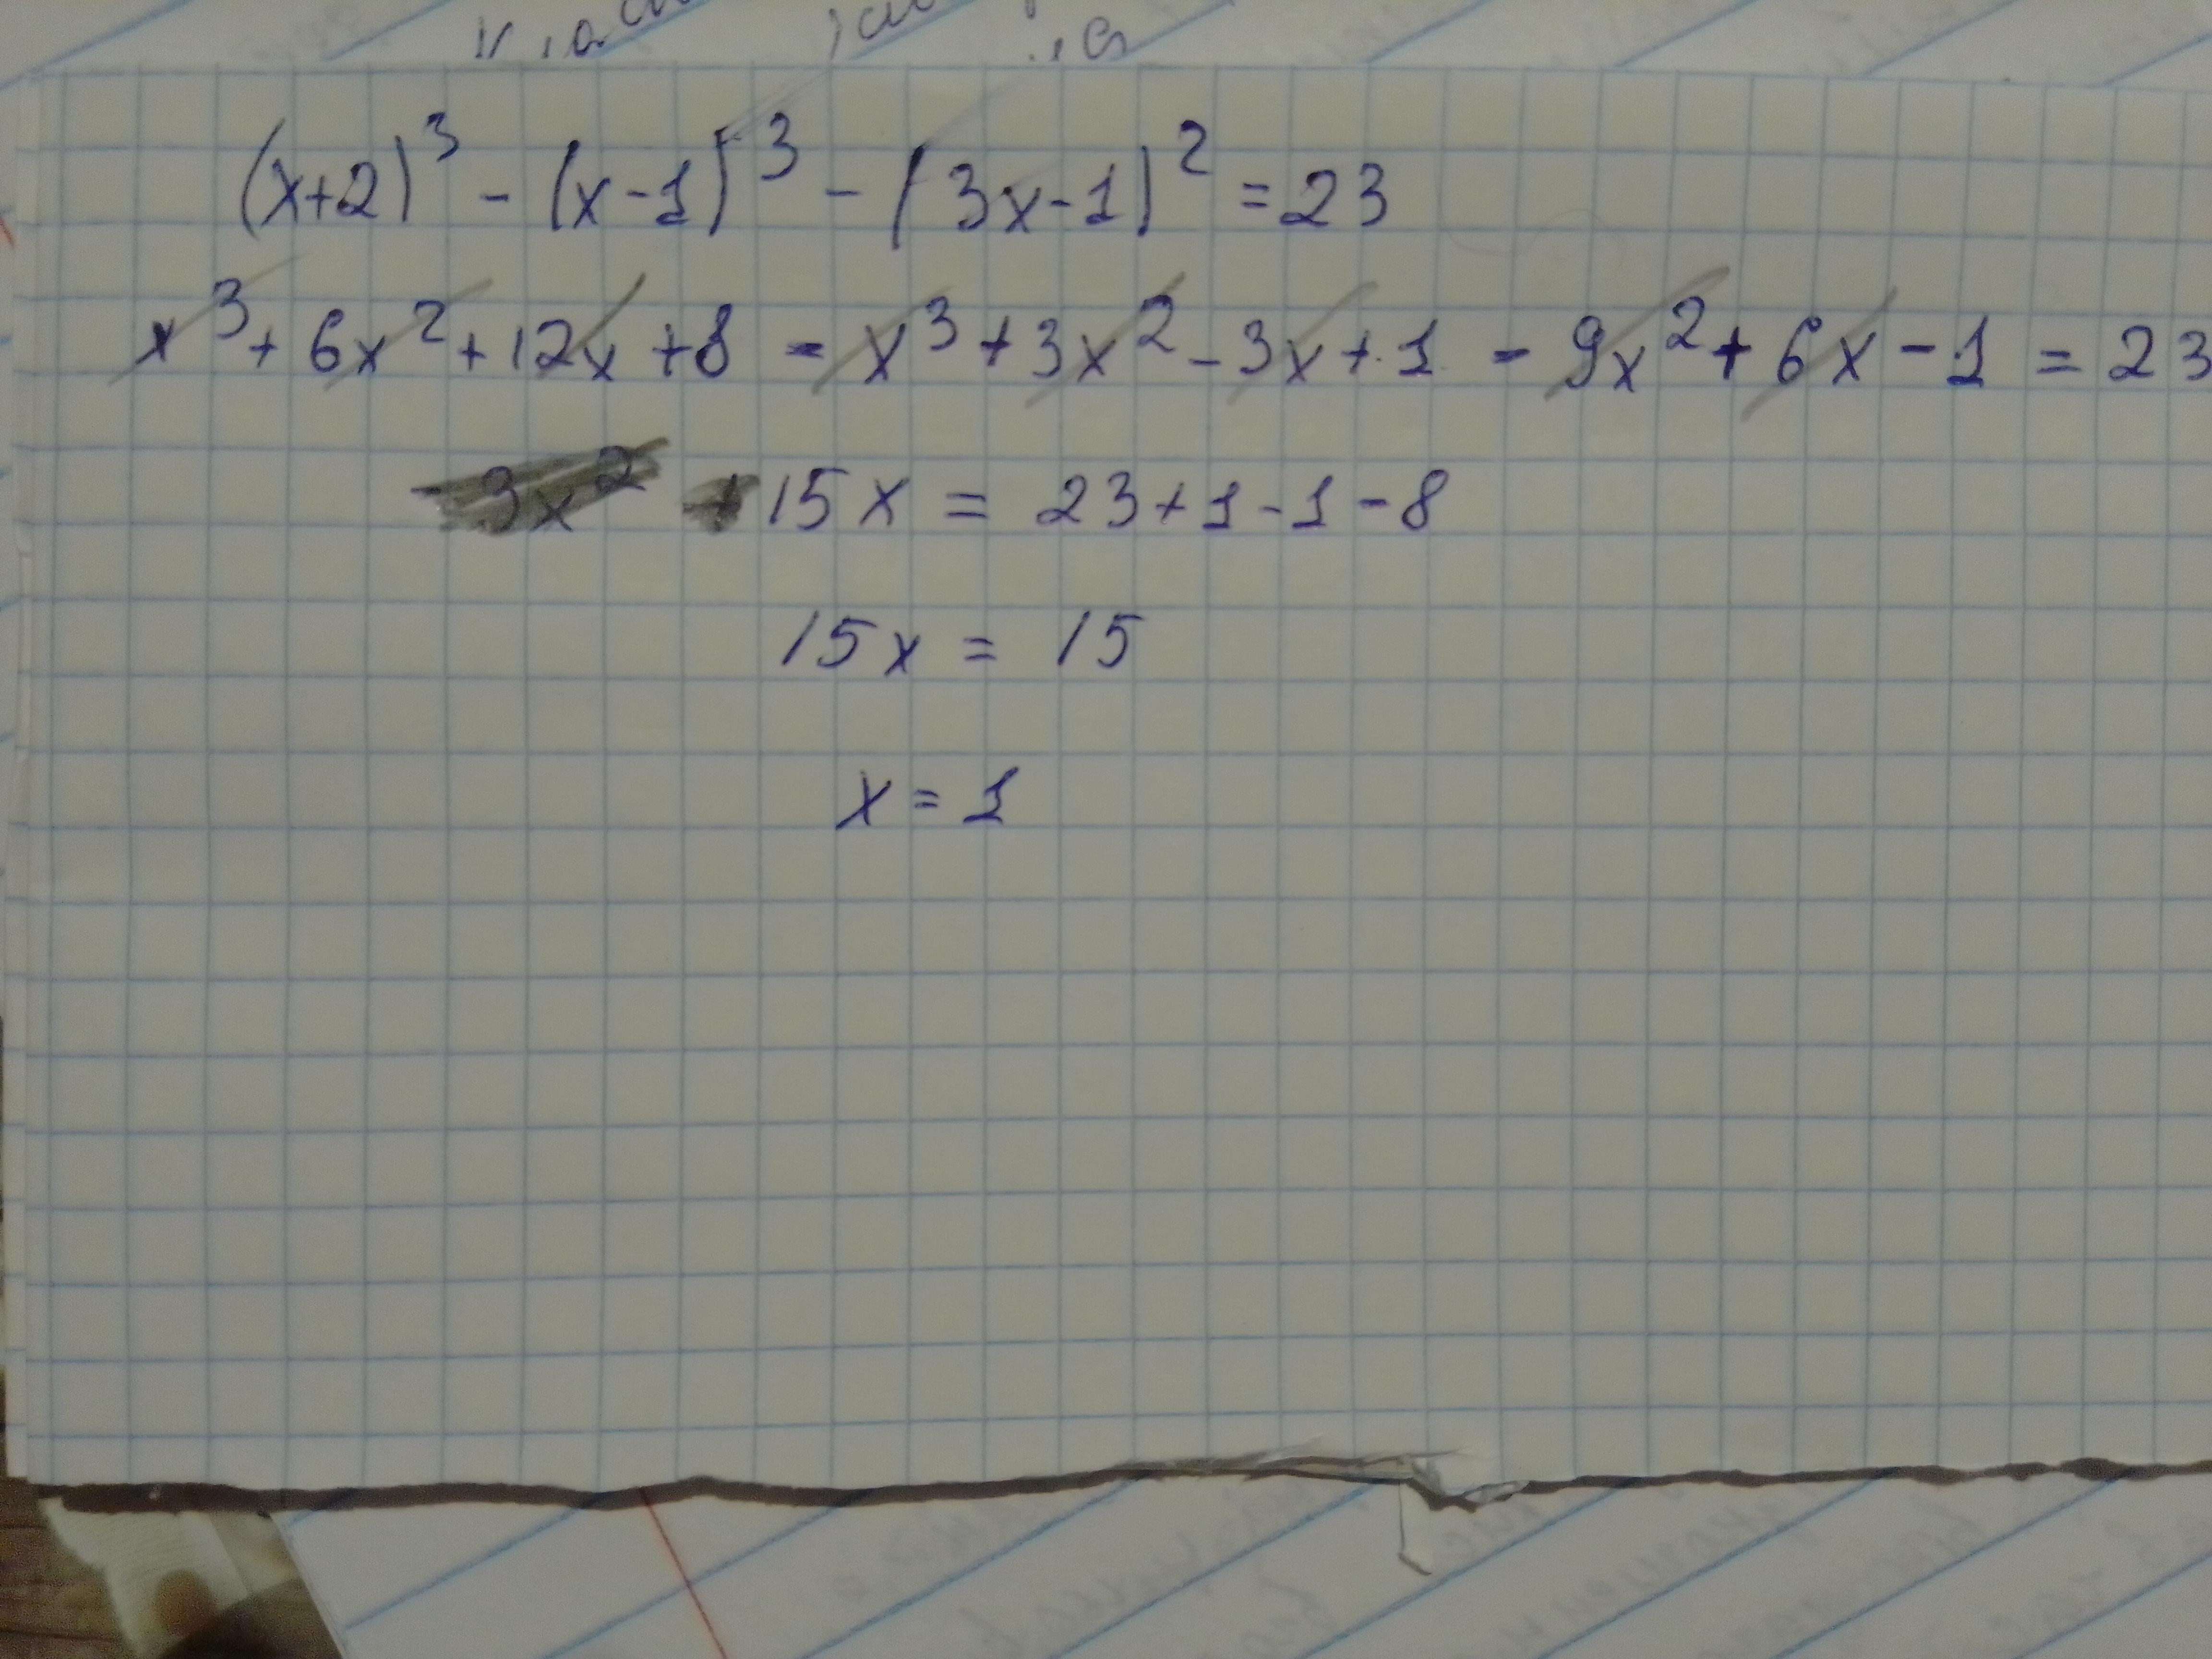 (x+2)³ - (x-1)³ - (3x-1)² = 23
x³ + 6x² + 12x + 8 - x³ + 3x² - 3x + 1 - 9x² + 6x - 1 = 23
- 3x² + 15x = 23 + 1 - 1 - 8
15x = 15
x = 1